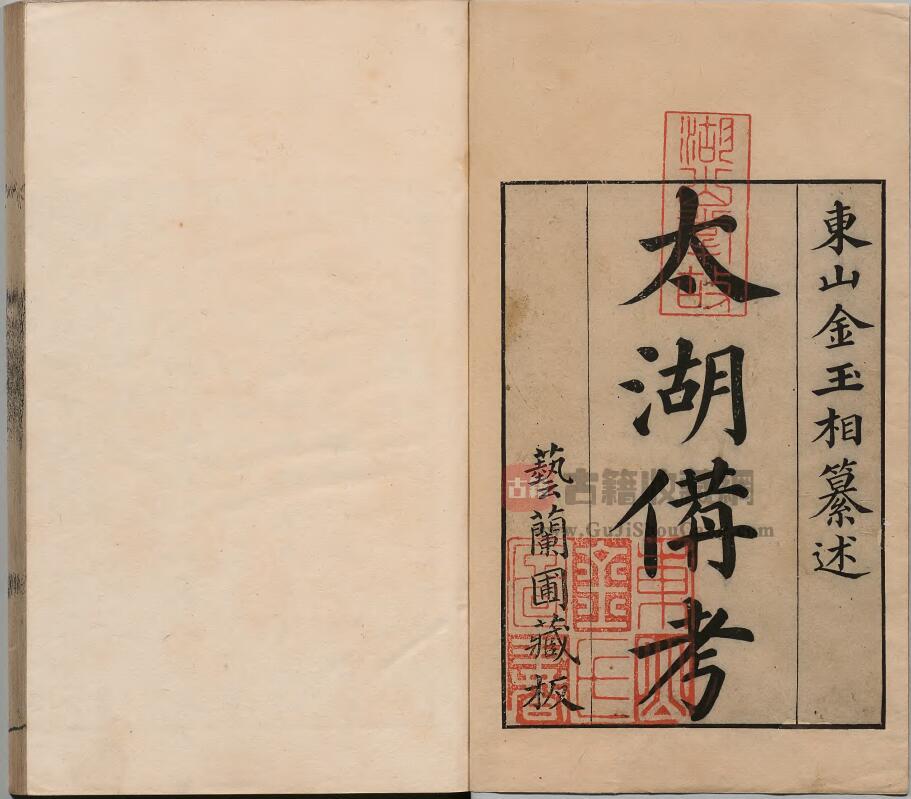 東山金玉相纂述
太湖備考
藝蘭圃藏板
古籍收藏網
www.GuJiShouCang.com